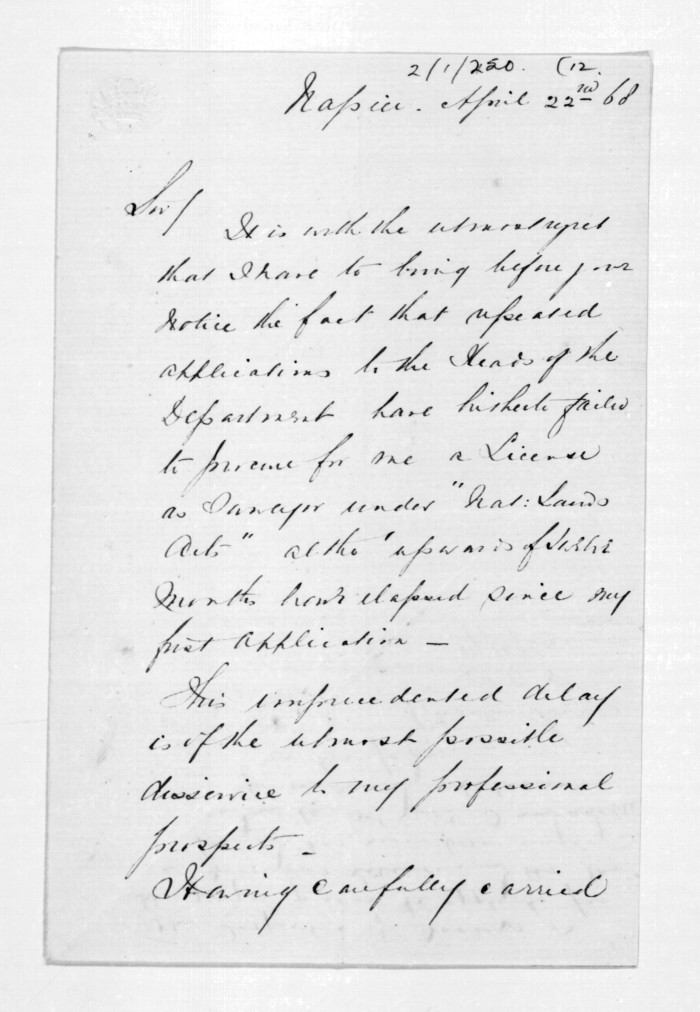 2/1/250. (12.
Napier. April 22nd 68
Sir/
It is with the utmost regret
that I have to bring before your
Notice the fact that repeated
applications to the Heads of the
Department have hitherto failed
to procure for me a License
as Surveyor under "Nat: Lands
Acts" altho' upwards of twelve
Months have elapsed since my
first Application —
This unprecedented delay
is of the utmost possible
disservice to my professional
prospects —
Having carefully carried